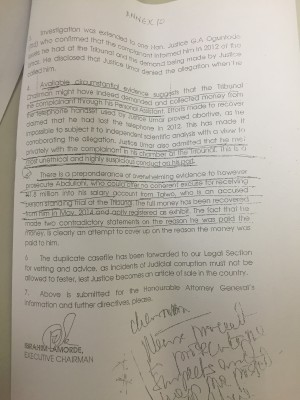 ANNEX 10
3. Investigation was extended to one Hon. Justice G.A. Ogunlolu
(rtd) who confirmed that the complainant informed him in 2012 of the
he had at the Tribunal and the demand being made by Justice
He disclosed that Justice Umar denied the allegation when he
called him.
4. Available circumstantial evidence suggest that the Tribunal
Chairman might have indeed demanded and collected money from
the complainant through his Personal Assistant. Efforts made to recover
the telephone handset used by Justice Umar proved abortive, as he
claimed that he had lost the telephone in 2012. This has made it
impossible to subject it to independent scientific analysis with a view to
corroborating the allegation. Justice Umar also admitted that he met
privately with the complainant in his chamber at the Tribunal. This is a
most unethical and highly suspicious conduct on his part.
5. There is a preponderance of overwhelming evidence to however
prosecute Abdullahi, who could offer no coherent excuse for receiving
N1.8 million into his salary account from Taiwo, who is an accused
person standing trial at the Tribunal. The full money has been recovered
from him in May, 2014 and aptly registered as exhibit. The fact that he
made two contradictory statements on the reason he was paid the
money, is clearly an attempt to cover up on the reason the money was
paid to him.
6. The duplicate casefile has been forwarded to our Legal Section
for vetting and advice, as incidents of Judicial corruption must not be
allowed to fester, lest Justice becomes an article of sale in the country.
7. Above is submitted for the Honourable Attorney General's
information and further directives, please.
IBRAHIM LAMORDE,
EXECUTIVE CHAIRMAN
Please